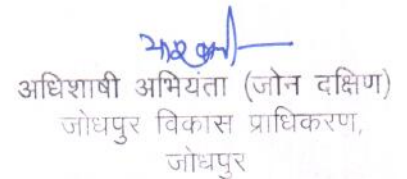 अधिशाषी अभियंता (जोन दक्षिण)
जोधपुर विकास प्राधिकरण,
जोधपुर